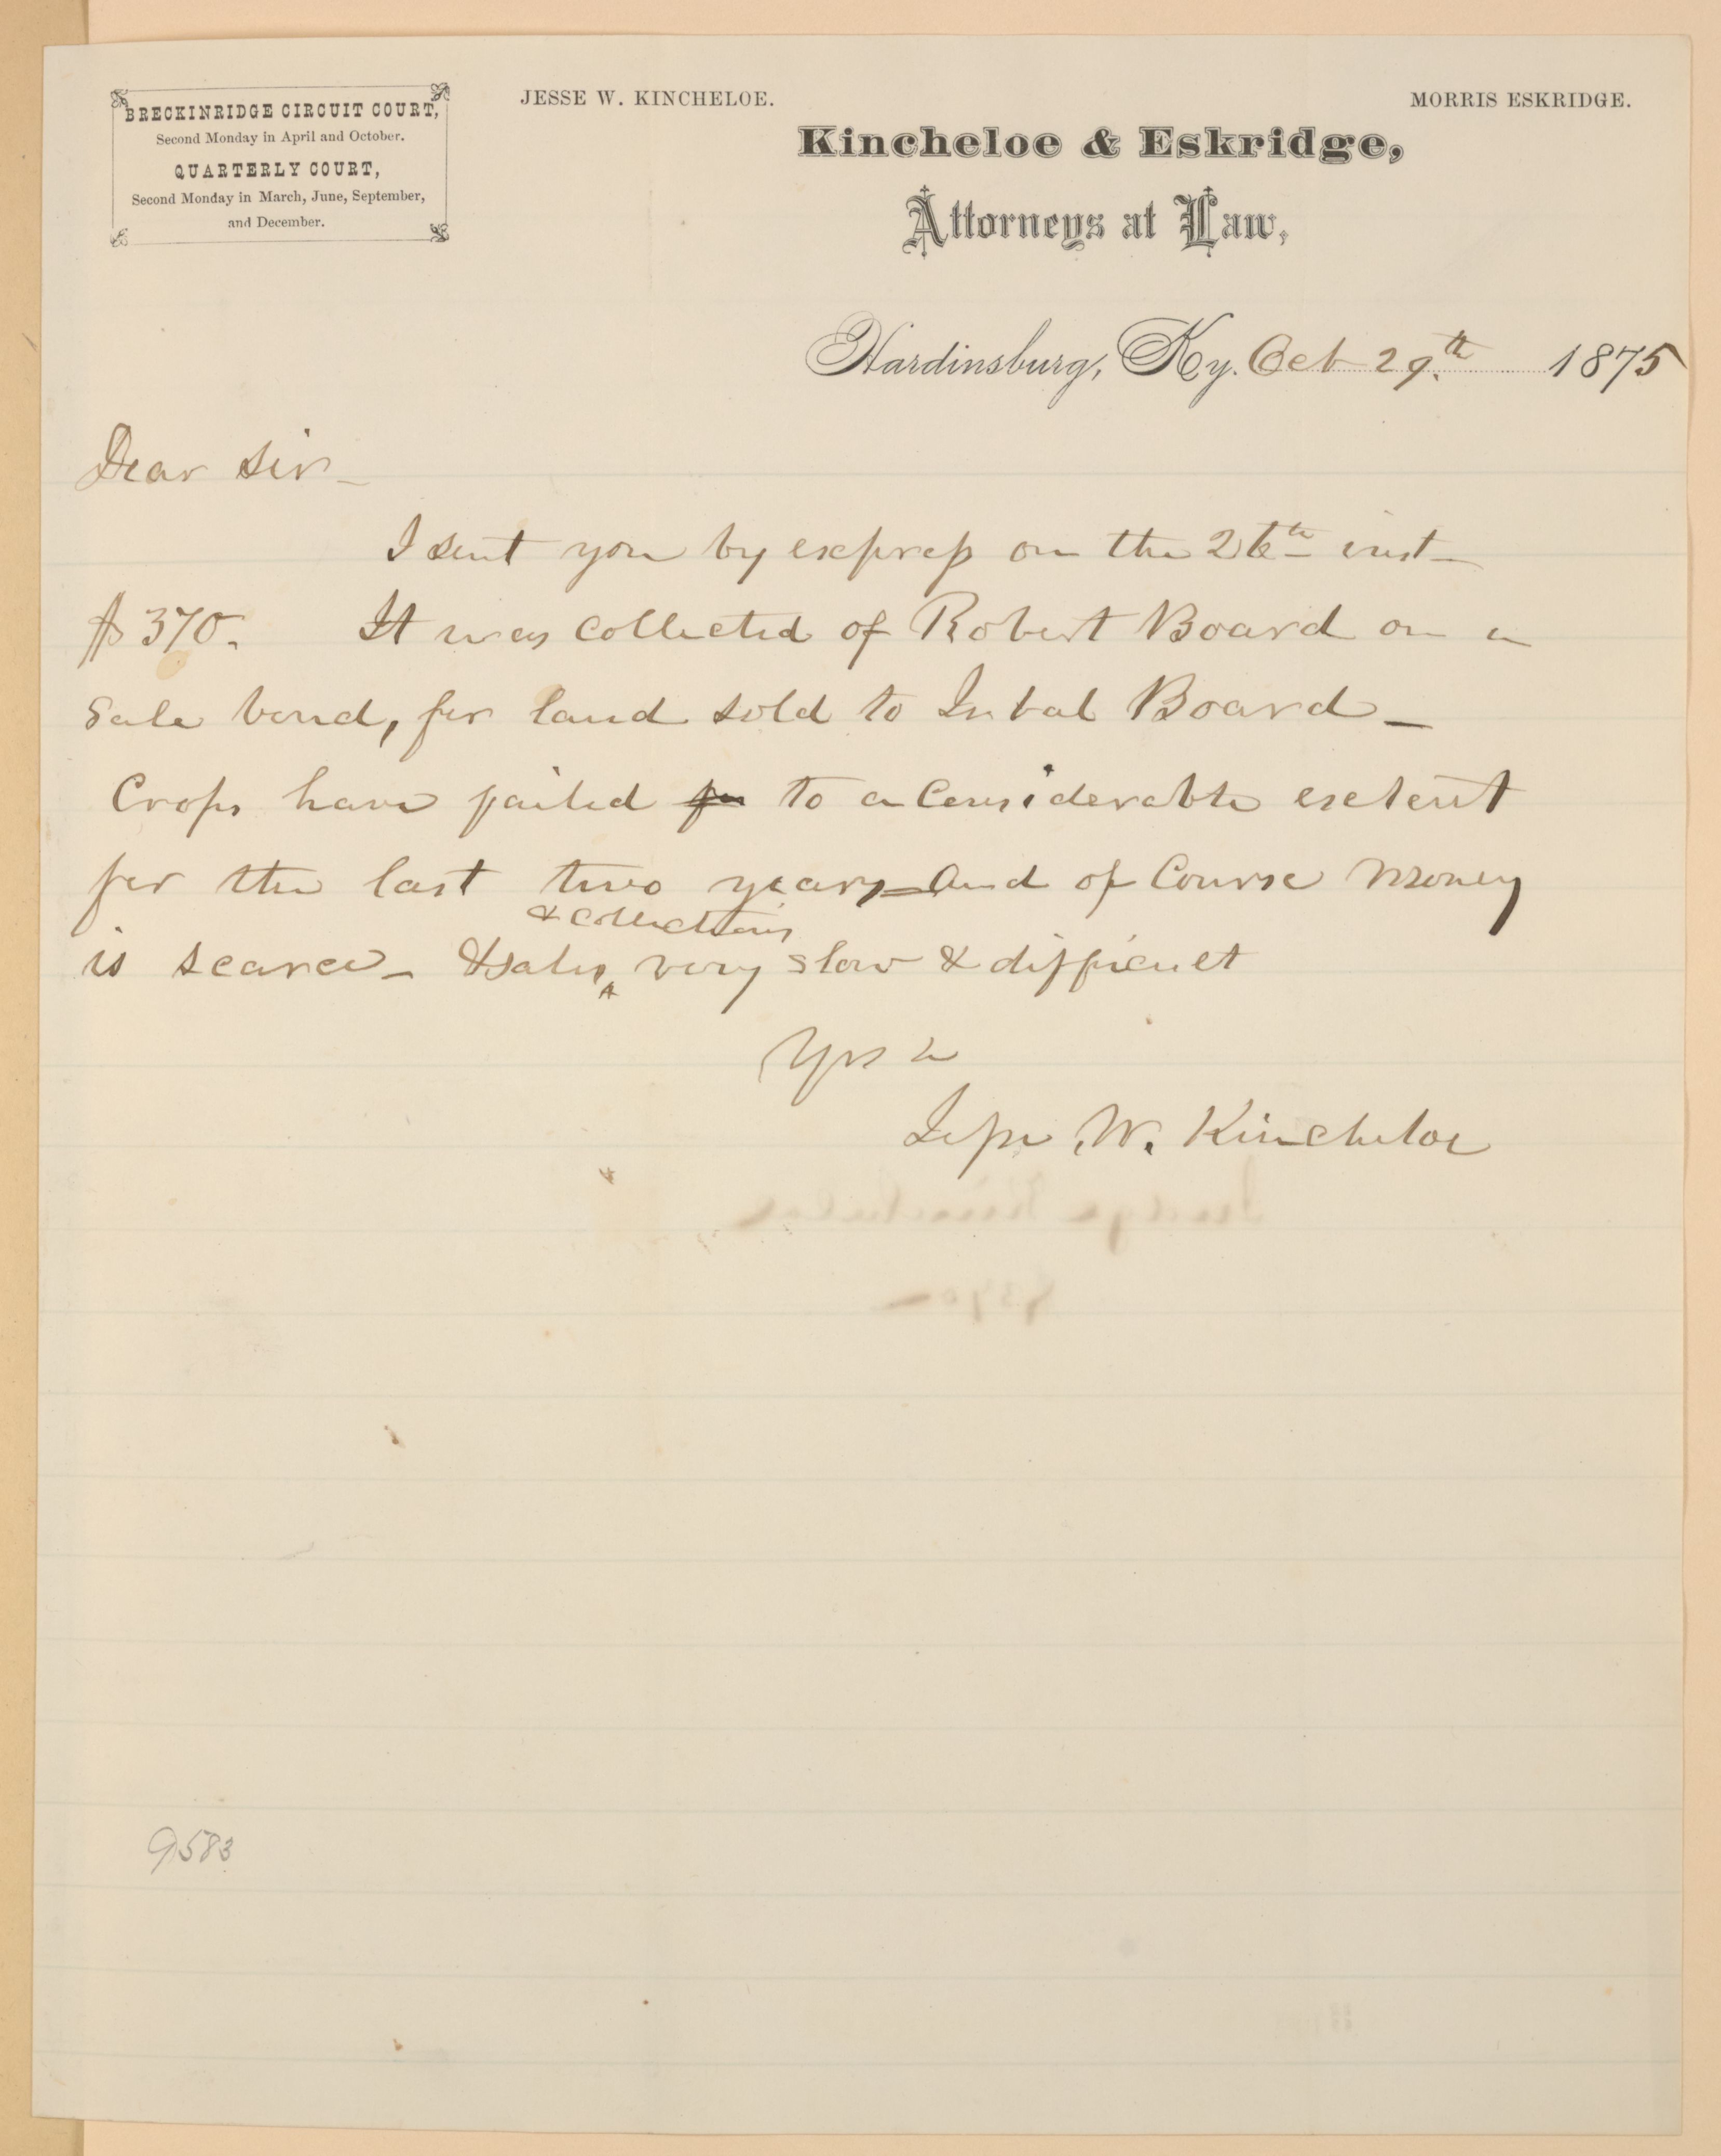 BRECKINRIDGE CIRCUIT COURT,
Second Monday in April and October.
QUARTERLY COURT,
Second Monday in March, June, September,
and December.
JESSE W. KINCHELOE.
MORRIS ESKRIDGE.
Kincheloe & Eskridge,
Attorneys at Law,
Hardinsburg, Ky. Oct 29th 1875
Dear Sir—
I sent you by express on the 26th inst—
$370. It was collected of Robert Board on a
Sale bond, for land sold to Board—
Crops have failed to a Considerable extent
for the last two years—And of Course Money
& collections
is scarce— & sales very slow & difficult
Yrs &
Jesse W. Kincheloe
Judge Kincheloe
$370
9583